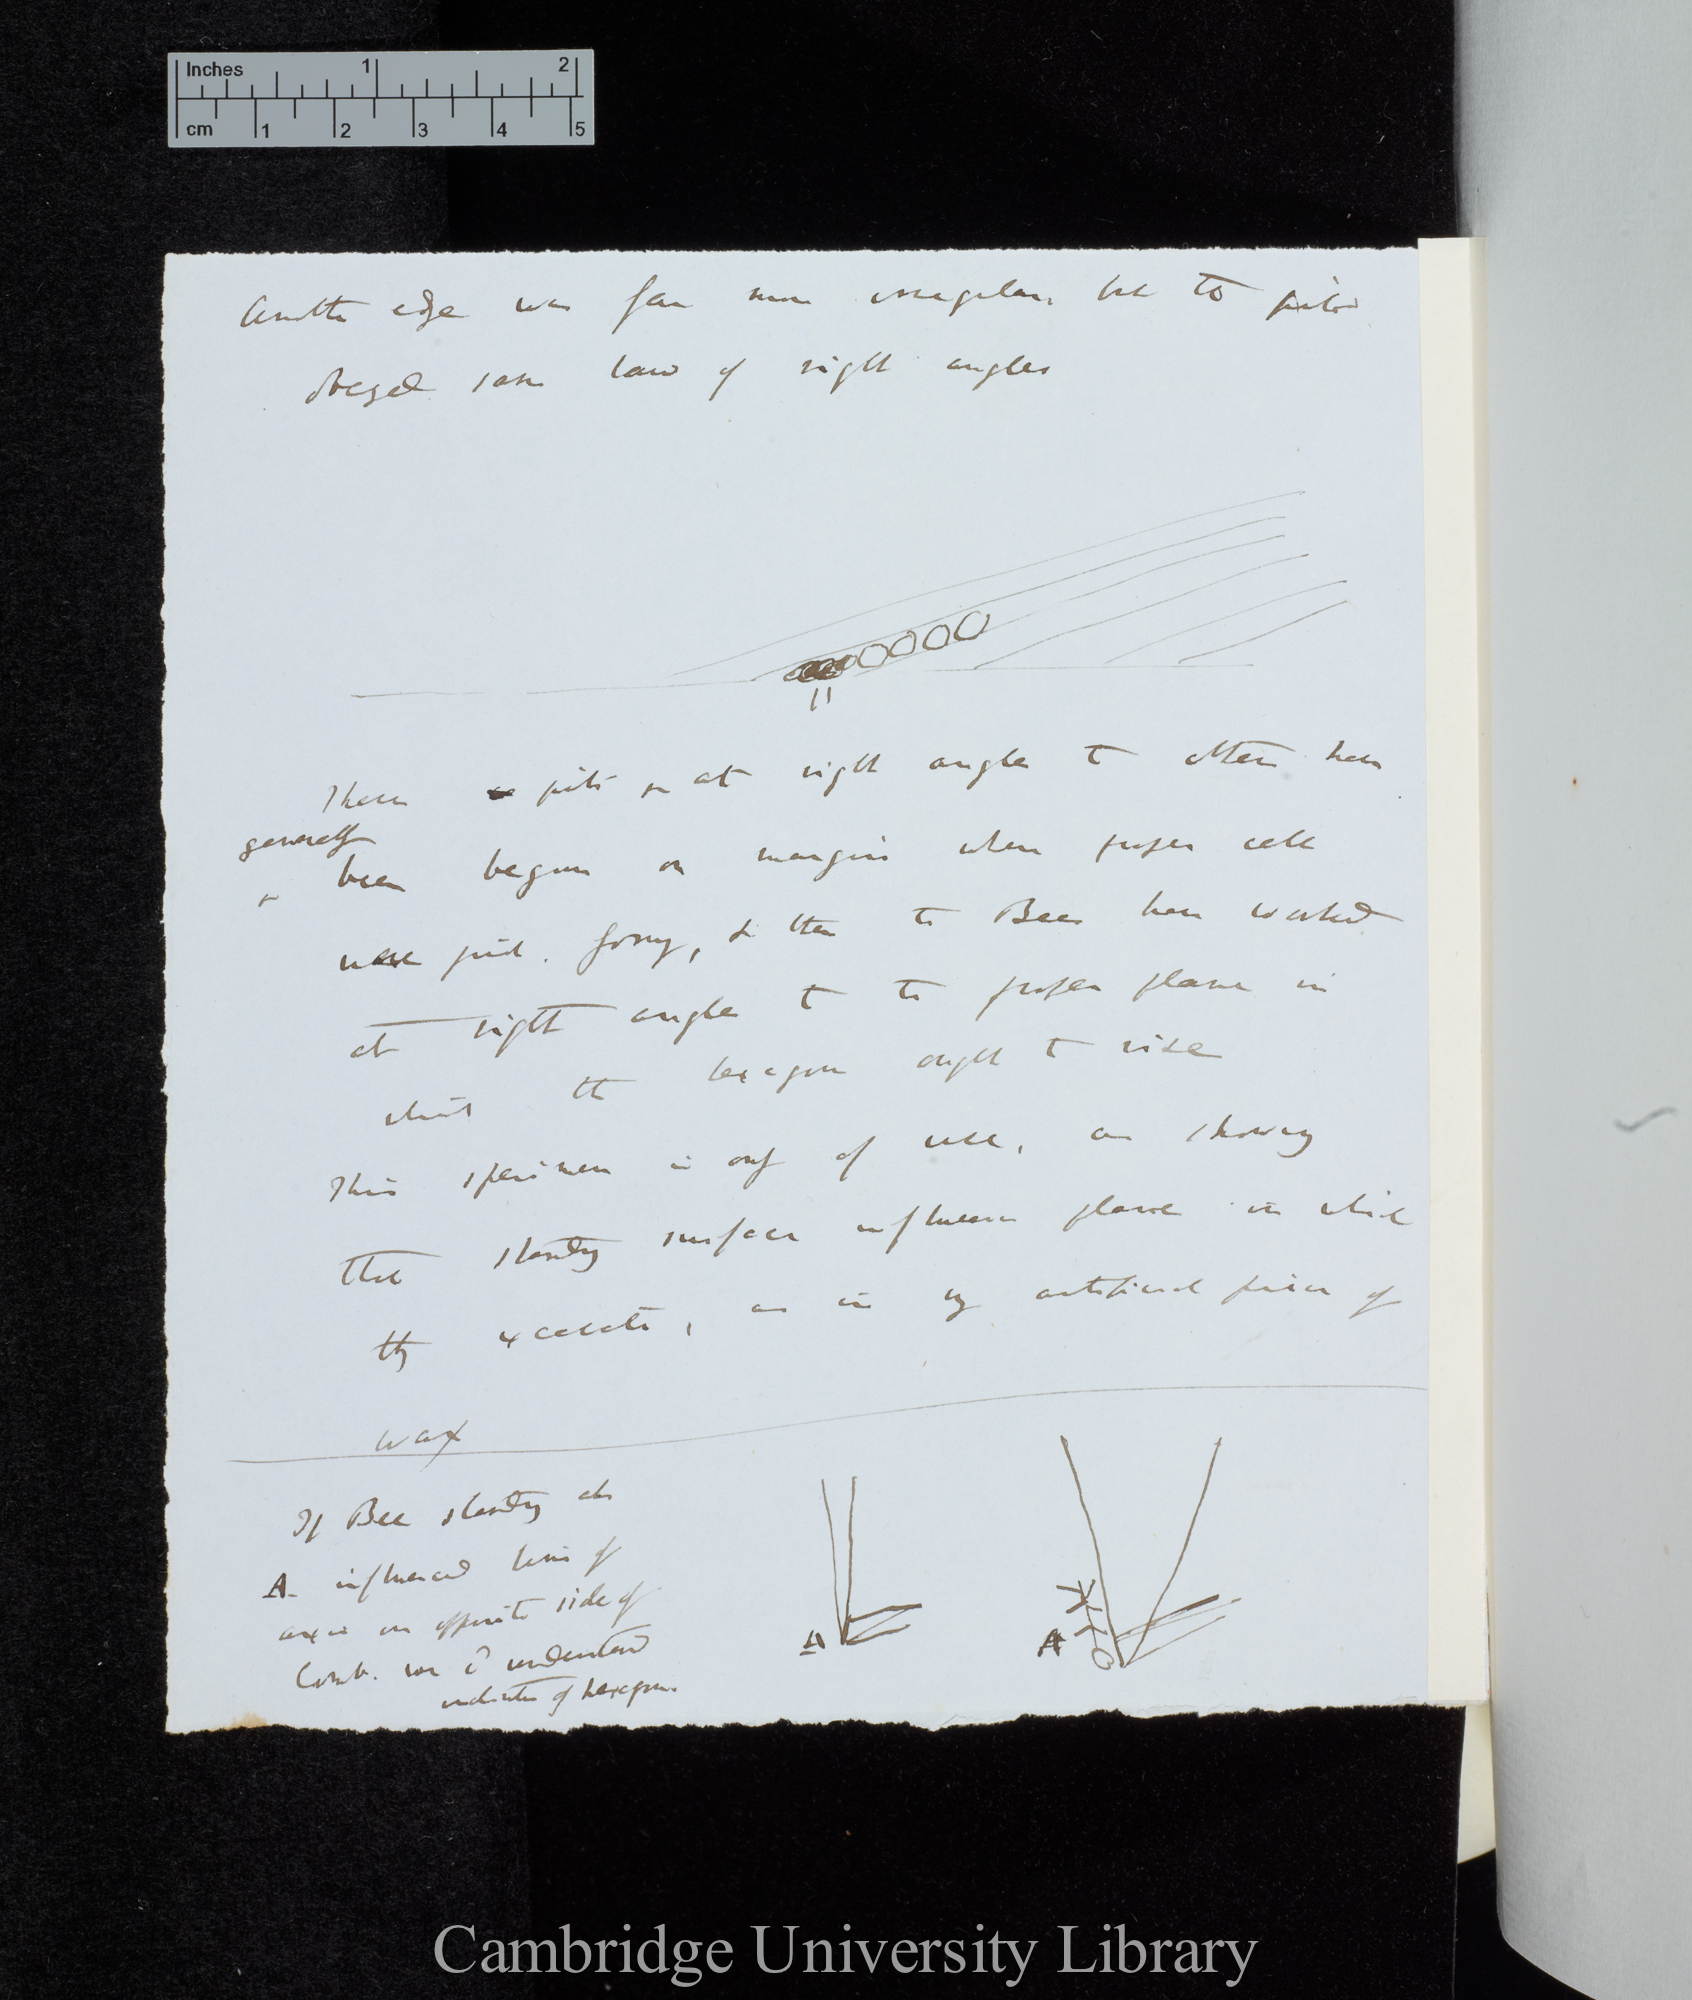 Inches 1 2
cm 1 2 3 4 5
Another edge was far more irregular, but the pits
obeyed same law of right angles
These pits are at right angles to others have
generally
been begun on margin where proper cell
were just , & then the Bees have worked
at right angles to the proper plane in
which the hexagon ought to rise
This specimen is only of use, as showing
that standing surface influences plane in which
they excavate, as in my artificial piece of
wax
If Bee standing at
A influenced line of
axis on opposite side of
Comb. we cd understand
of hexagons
A
A
Cambridge University Library